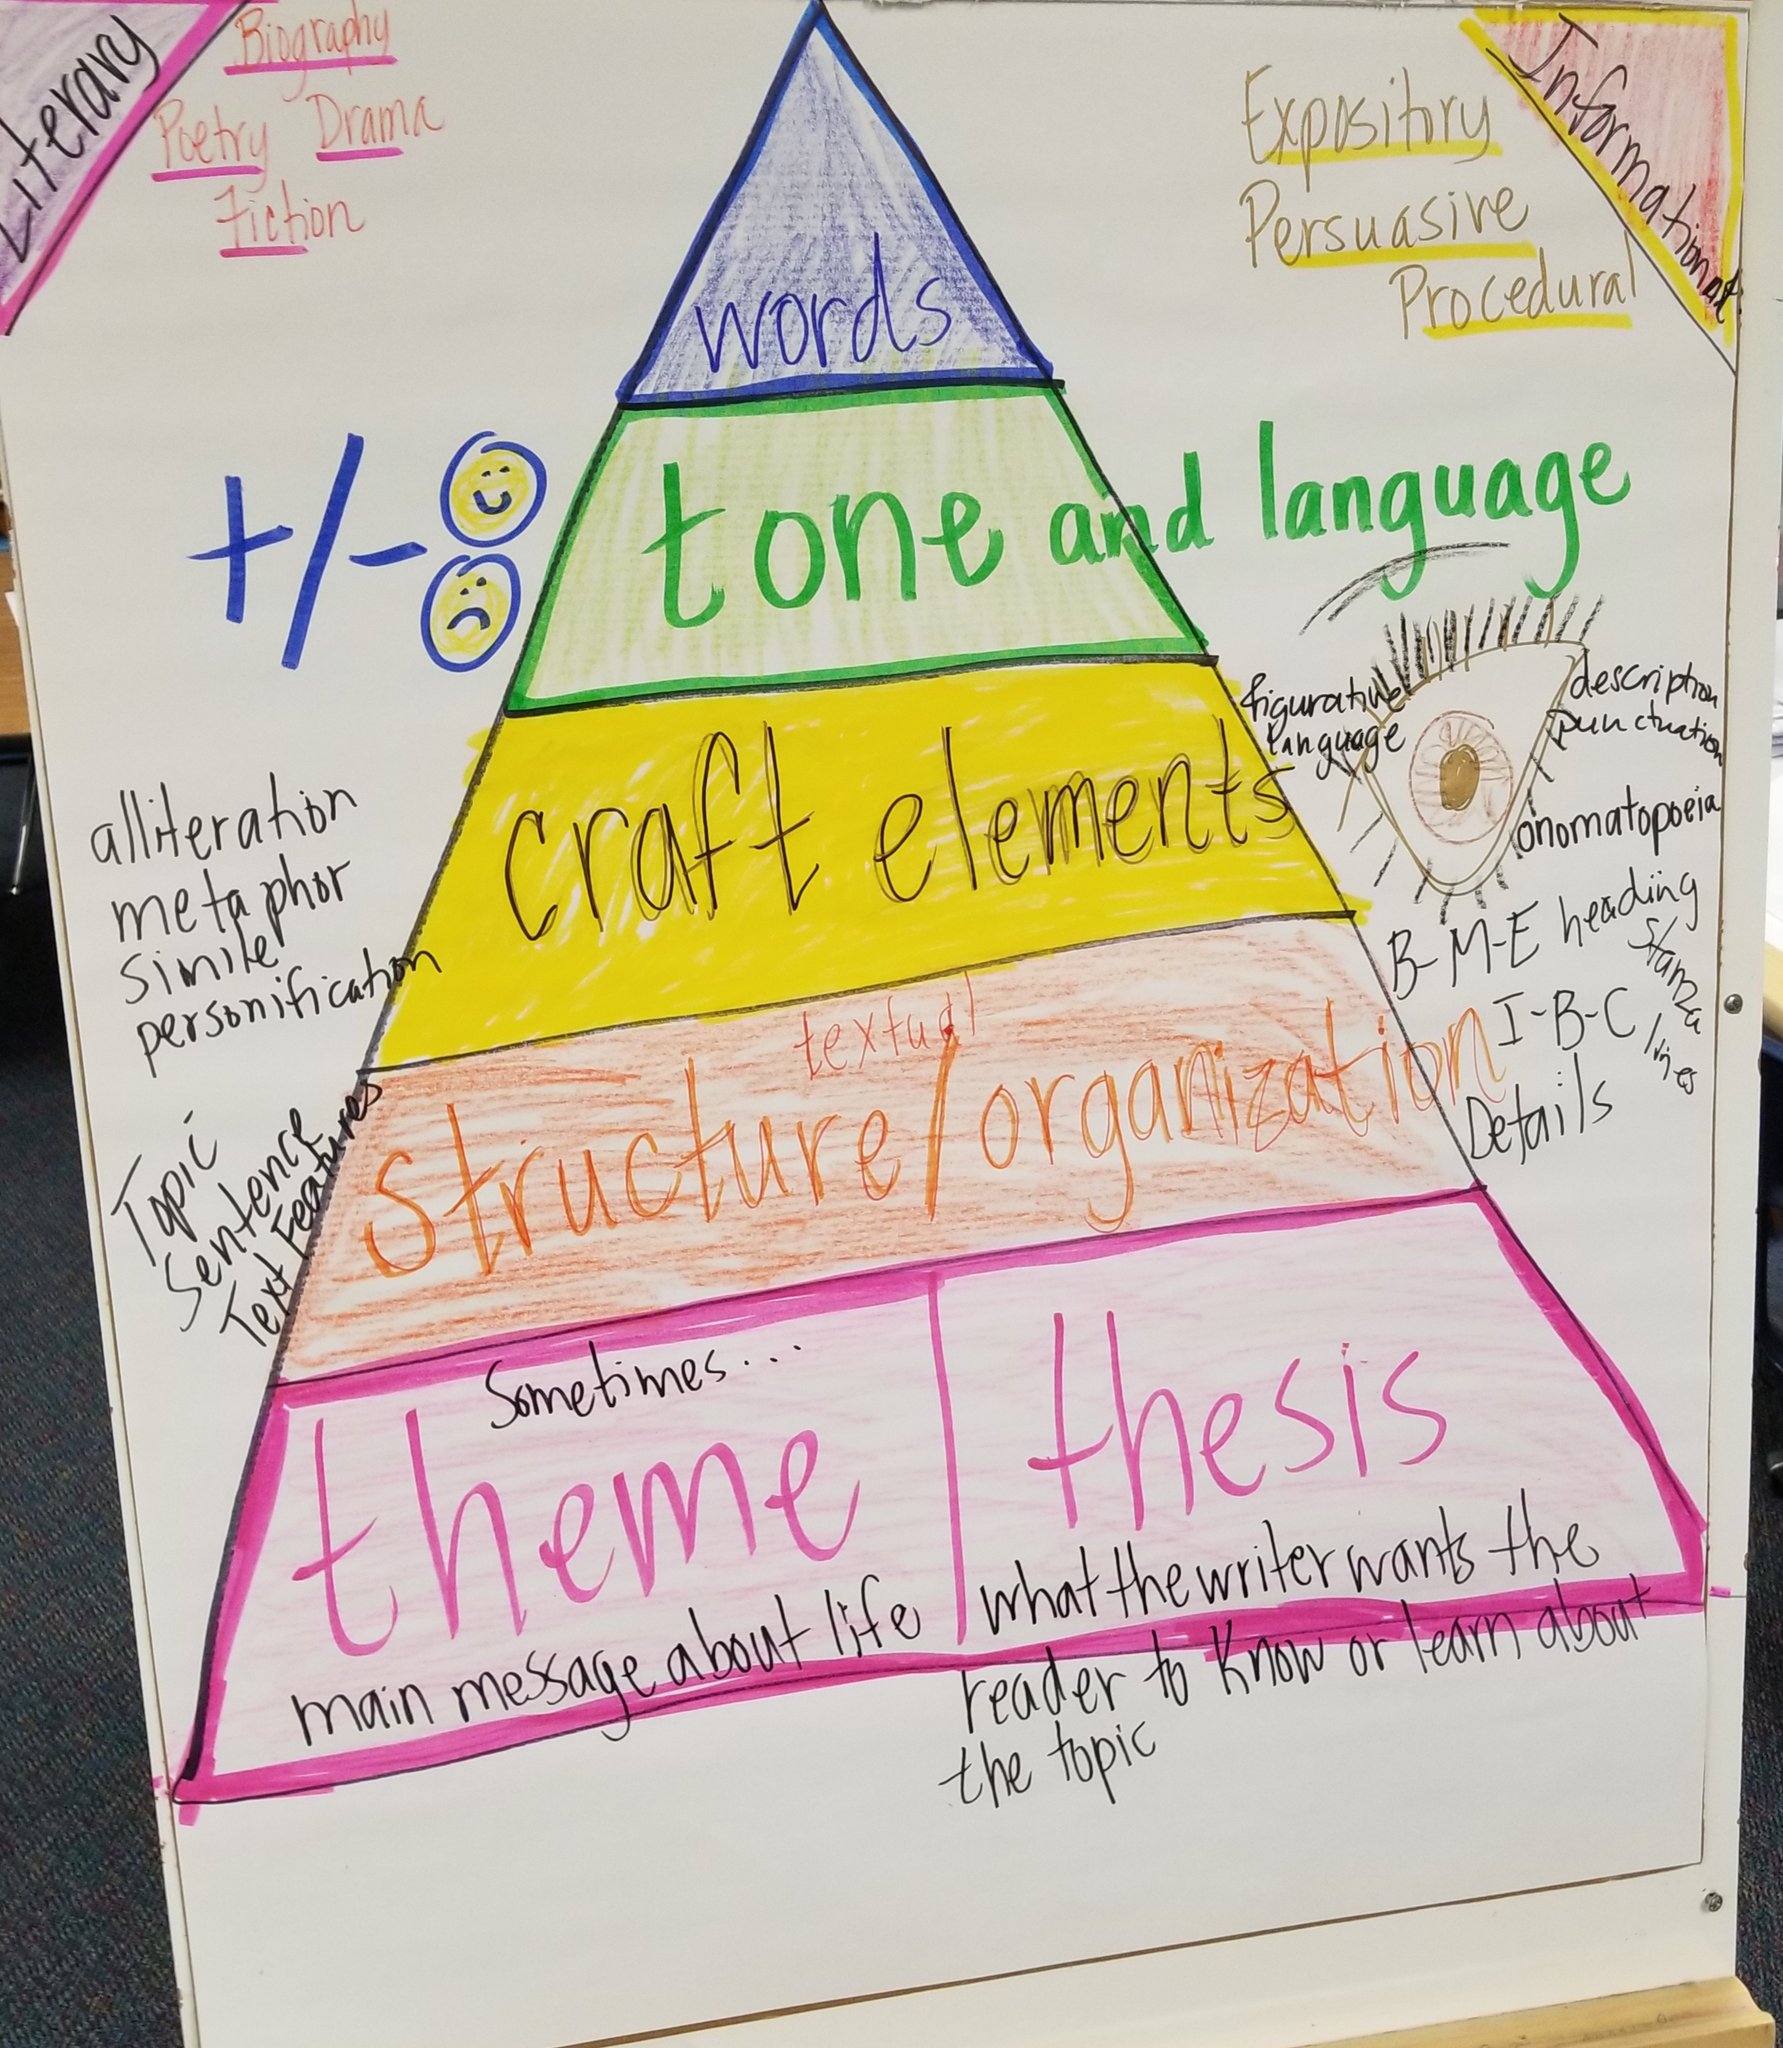 Literary
Biography
Poetry Drama
Fiction
Informational
Expository
Persuasive
Procedural
words
+/-
tone and language
craft elements
alliteration
metaphor
simile
personification
figurative
language
description
punctuation
onomatopoeia
textual
structure/organization
Topic
Sentence
Text Features
B-M-E heading
stanza
I-B-C
lines
Details
Sometimes...
theme
main message about life
thesis
what the writer wants the
reader to know or learn about
the topic